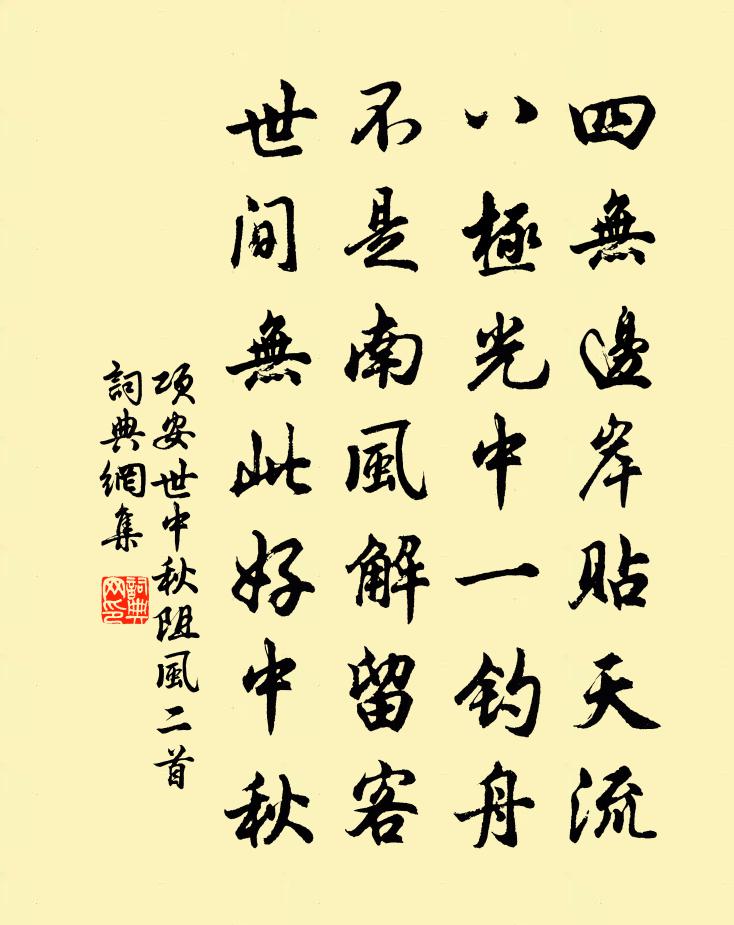 四無邊岸貼天流
八極光中一釣舟
不是南風解留客
世間無此好中秋
項安世中秋阻風二首
詞典網集
詞典网印